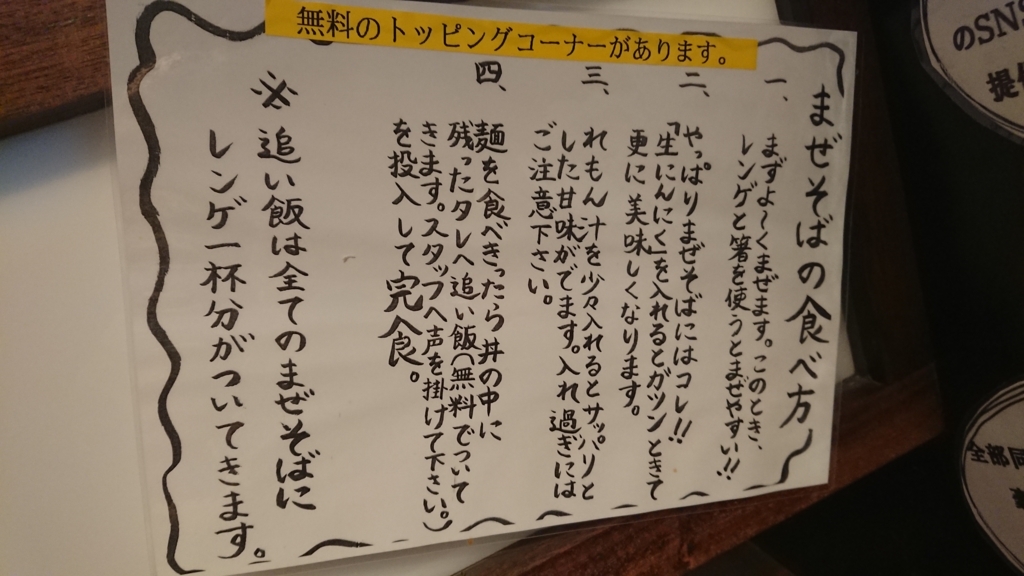 無料のトッピングコーナーがあります。
まぜそばの食べ方
一、
まずよ〜くまぜます。このとき、
レンゲと箸を使うとまぜやすい!!
二、
やっぱりまぜそばにはコレ!!
「生にんにく」を入れるとガツンときて
更に美味しくなります。
三、
れもん汁を少々入れるとサッパリと
した甘味がでます。入れ過ぎには
ご注意下さい。
四、
麺を食べきったら丼の中に
残ったタレへ追い飯(無料でついて
きます。スタッフへ声を掛けて下さい。)
を投入して完食。
※追い飯は全てのまぜそばに
レンゲ一杯分がついてきます。
のSNS
提
全部同